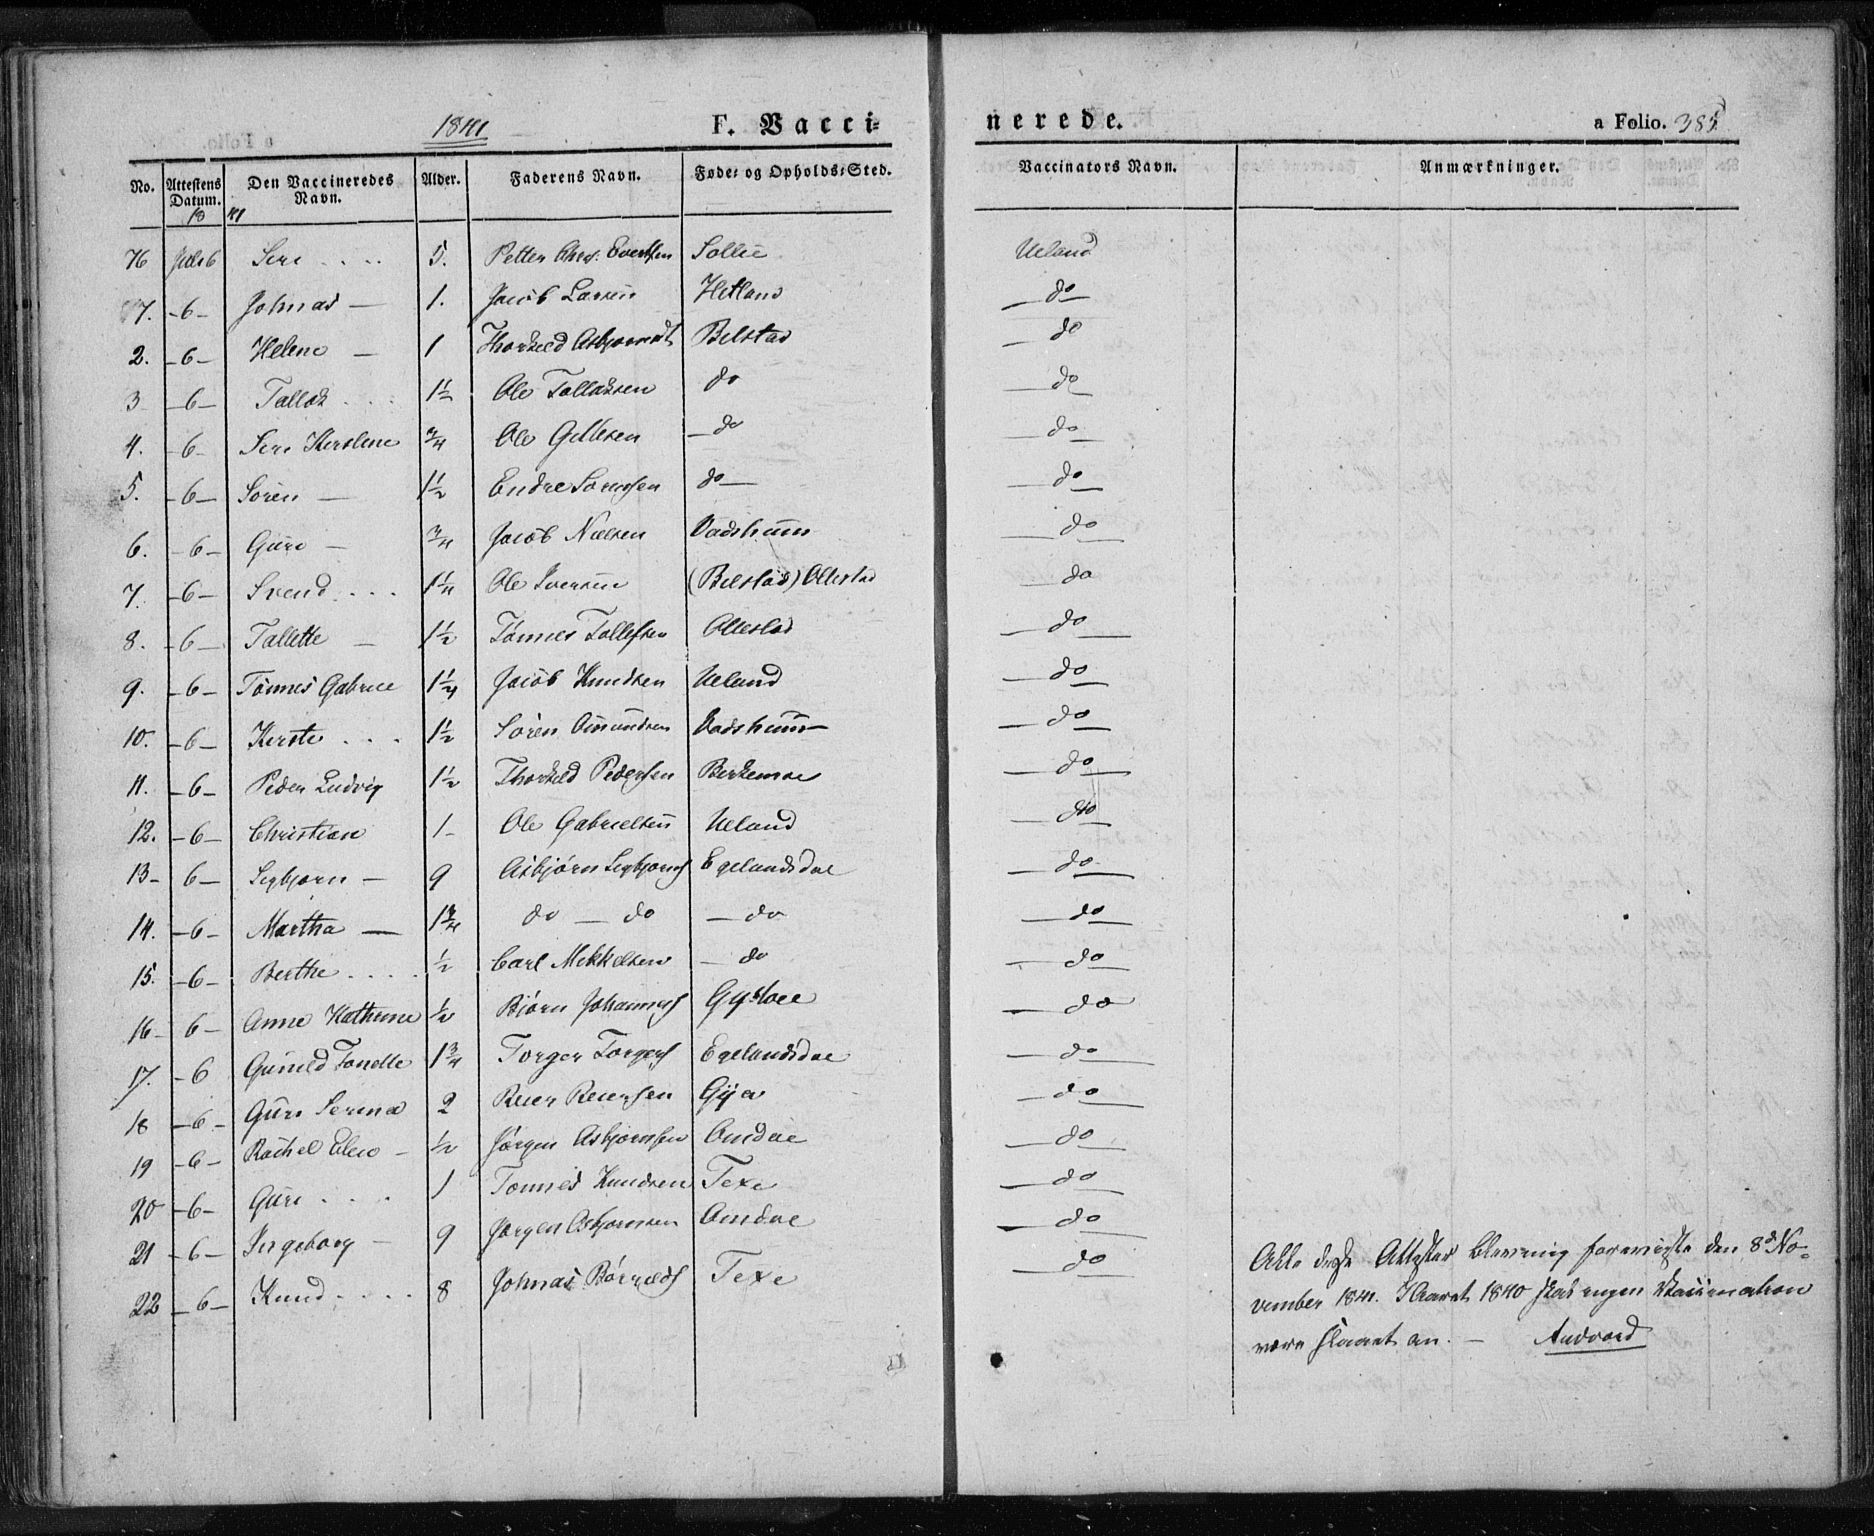 1841 F. Vacci= nerede. a Folio. 385
No. Attestens Datum. Den Vaccineredes Navn. Alder. Faderens Navn. Føde= og Opholds=Sted. Vaccinators Navn. Anmærkninger.
18 41
76 6 Seri .... 5. Petter Evertsen Sollie Ueland
7. -6- Johnas — 1. Jacob Larsen Hetland — do —
2. -6- Helene — 1 Thorkeld Asbjørns Belstad — do
3 -6- Tallak ... 1½ Ole Tallaksen do — do
4. -6- Seri Kerstene ¾ Ole — do — do —
5. -6- Søren — 1½ Endre Sørensen do — — do —
6. -6- Guri — ¾ Jacob Nielsen Vadshuum — do —
7. -6- Svend .... 1¼ Ole Iversen (Belstad) Ollestad — do —
8. -6- Tallette — 1½ Tønnes Tollefsen Ollestad — do —
9. -6- Tønnes Gabriel 1¼ Jacob Knudsen Ueland — do —
10. -6- Kerste ... 1½ Søren Amundsen Vadshuum — do —
11. -6- Peder Ludvig 1½ Thorkeld Pedersen Berkemoe — do —
12. -6- Christian 1- Ole Gabrielsen Ueland — do —
13- 6- Segbjørn — 9 Asbjørn Segbjørns Egelandsdal — do —
14. -6- Martha — 1¾ do — do — do — do —
15. -6- Berthe .... ½ Carl Mekkelsen — do — do —
16- 6- Anne Kathrine ½ Bjørn Johannes — do
17. -6 Gunild Tonette 1¾ Torger Torgers Egelandsdal — do —
18 -6- Guri Serina 2 Reier Reiersen Gya — do —
19 -6- Rachel Elene — ½ Jørgen Asbjørnsen Omdal — do —
20 -6- Guri .... 1 Tønnes Knudsen Texe — do —
21 -6- Ingeborg — 9 Jørgen Asbjørnsen Omdal — do —
22 -6- Knud .... 8 Johnas Texe — do —
Alle disse Attester bleve mig foreviiste den 8d No-
vember 1841. I Aaret 1840 skal ingen Vaccination
være slaaet an. — Andvord